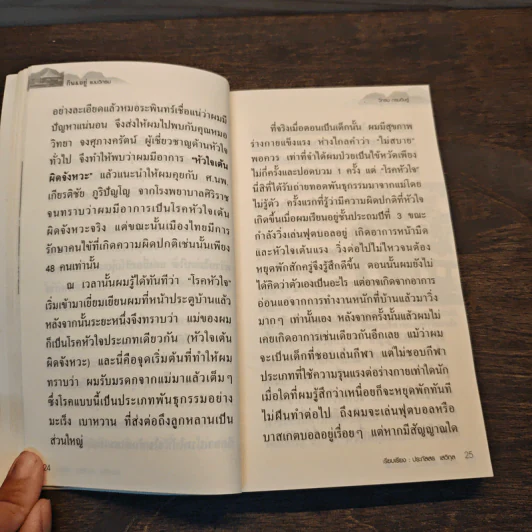 กินและอยู่
อย่างละเอียดแล้วหมอระพินทร์เชื่อแน่ว่าผมมี
ปัญหาแน่นอน จึงส่งให้ผมไปพบกับคุณหมอ
วิทยา จงศุภางครัตน์ ผู้เชี่ยวชาญด้านหัวใจ
ทั่วไป จึงทำให้พบว่าผมมีอาการ "หัวใจเต้น
ผิดจังหวะ" แล้วแนะนำให้ผมคุยกับ ศ.นพ.
เกียรติชัย ภูริปัญโญ จากโรงพยาบาลศิริราช
จนทราบว่าผมมีอาการเป็นโรคหัวใจเต้น
ผิดจังหวะจริง แต่ขณะนั้นเมืองไทยมีการ
รักษาคนไข้ที่เกิดความผิดปกติเช่นนั้นเพียง
48 คนเท่านั้น
ณ เวลานั้นผมรู้ได้ทันทีว่า "โรคหัวใจ"
เริ่มเข้ามาเยี่ยมเยียนผมที่หน้าประตูบ้านแล้ว
หลังจากนั้นระยะหนึ่งจึงทราบว่า แม่ของผม
ก็เป็นโรคหัวใจประเภทเดียวกัน (หัวใจเต้น
ผิดจังหวะ) และนี่คือจุดเริ่มต้นที่ทำให้ผม
ทราบว่า ผมรับมรดกจากแม่มาแล้วเต็มๆ
ซึ่งโรคแบบนี้เป็นประเภทพันธุกรรมอย่าง
มะเร็ง เบาหวาน ที่ส่งต่อถึงลูกหลานเป็น
ส่วนใหญ่
ที่จริงเมื่อตอนเป็นเด็กนั้น ผมมีสุขภาพ
ร่างกายแข็งแรง ห่างไกลคำว่า "ไม่สบาย"
พอควร เท่าที่จำได้ผมป่วยเป็นไข้หวัดเพียง
ไม่กี่ครั้งและปอดบวม 1 ครั้ง แต่ "โรคหัวใจ"
นี่สิที่ได้รับถ่ายทอดพันธุกรรมมาจากแม่โดย
ไม่รู้ตัว ครั้งแรกที่รู้ว่ามีความผิดปกติที่หัวใจ
เกิดขึ้นเมื่อผมเรียนอยู่ชั้นประถมปีที่ 3 ขณะ
กำลังวิ่งเล่นฟุตบอลอยู่ เกิดอาการหน้ามืด
และหัวใจเต้นแรง วิ่งต่อไปไม่ไหวจนต้อง
หยุดพักสักครู่จึงรู้สึกดีขึ้น ตอนนั้นผมยังไม่
ได้คิดว่าตัวเองเป็นอะไร แต่อาจเกิดจากอาการ
อ่อนแอจากการทำงานหนักที่บ้านแล้วมาวิ่ง
มากๆ เท่านั้นเอง หลังจากครั้งนั้นแล้วผมไม่
เคยเกิดอาการเช่นเดียวกันอีกเลย แม้ว่าผม
จะเป็นเด็กที่ชอบเล่นกีฬา แต่ไม่ชอบกีฬา
ประเภทที่ใช้ความรุนแรงต่อร่างกายเท่าใดนัก
เมื่อใดที่ผมรู้สึกว่าเหนื่อยก็จะหยุดพักทันที
ไม่ฝืนทำต่อไป ถึงผมจะเล่นฟุตบอลหรือ
บาสเกตบอลอยู่เรื่อยๆ แต่หากมีสัญญาณใด
เรียบเรียง : ประภัสสร เสวิกุล 25